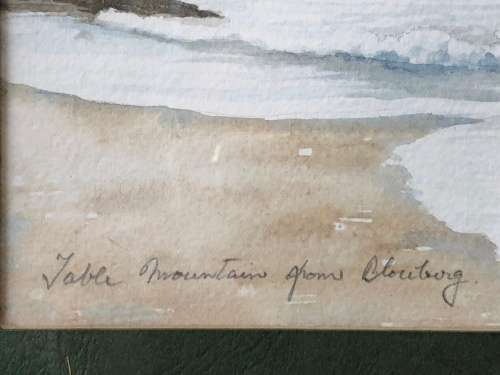 Table Mountain from Blouberg.